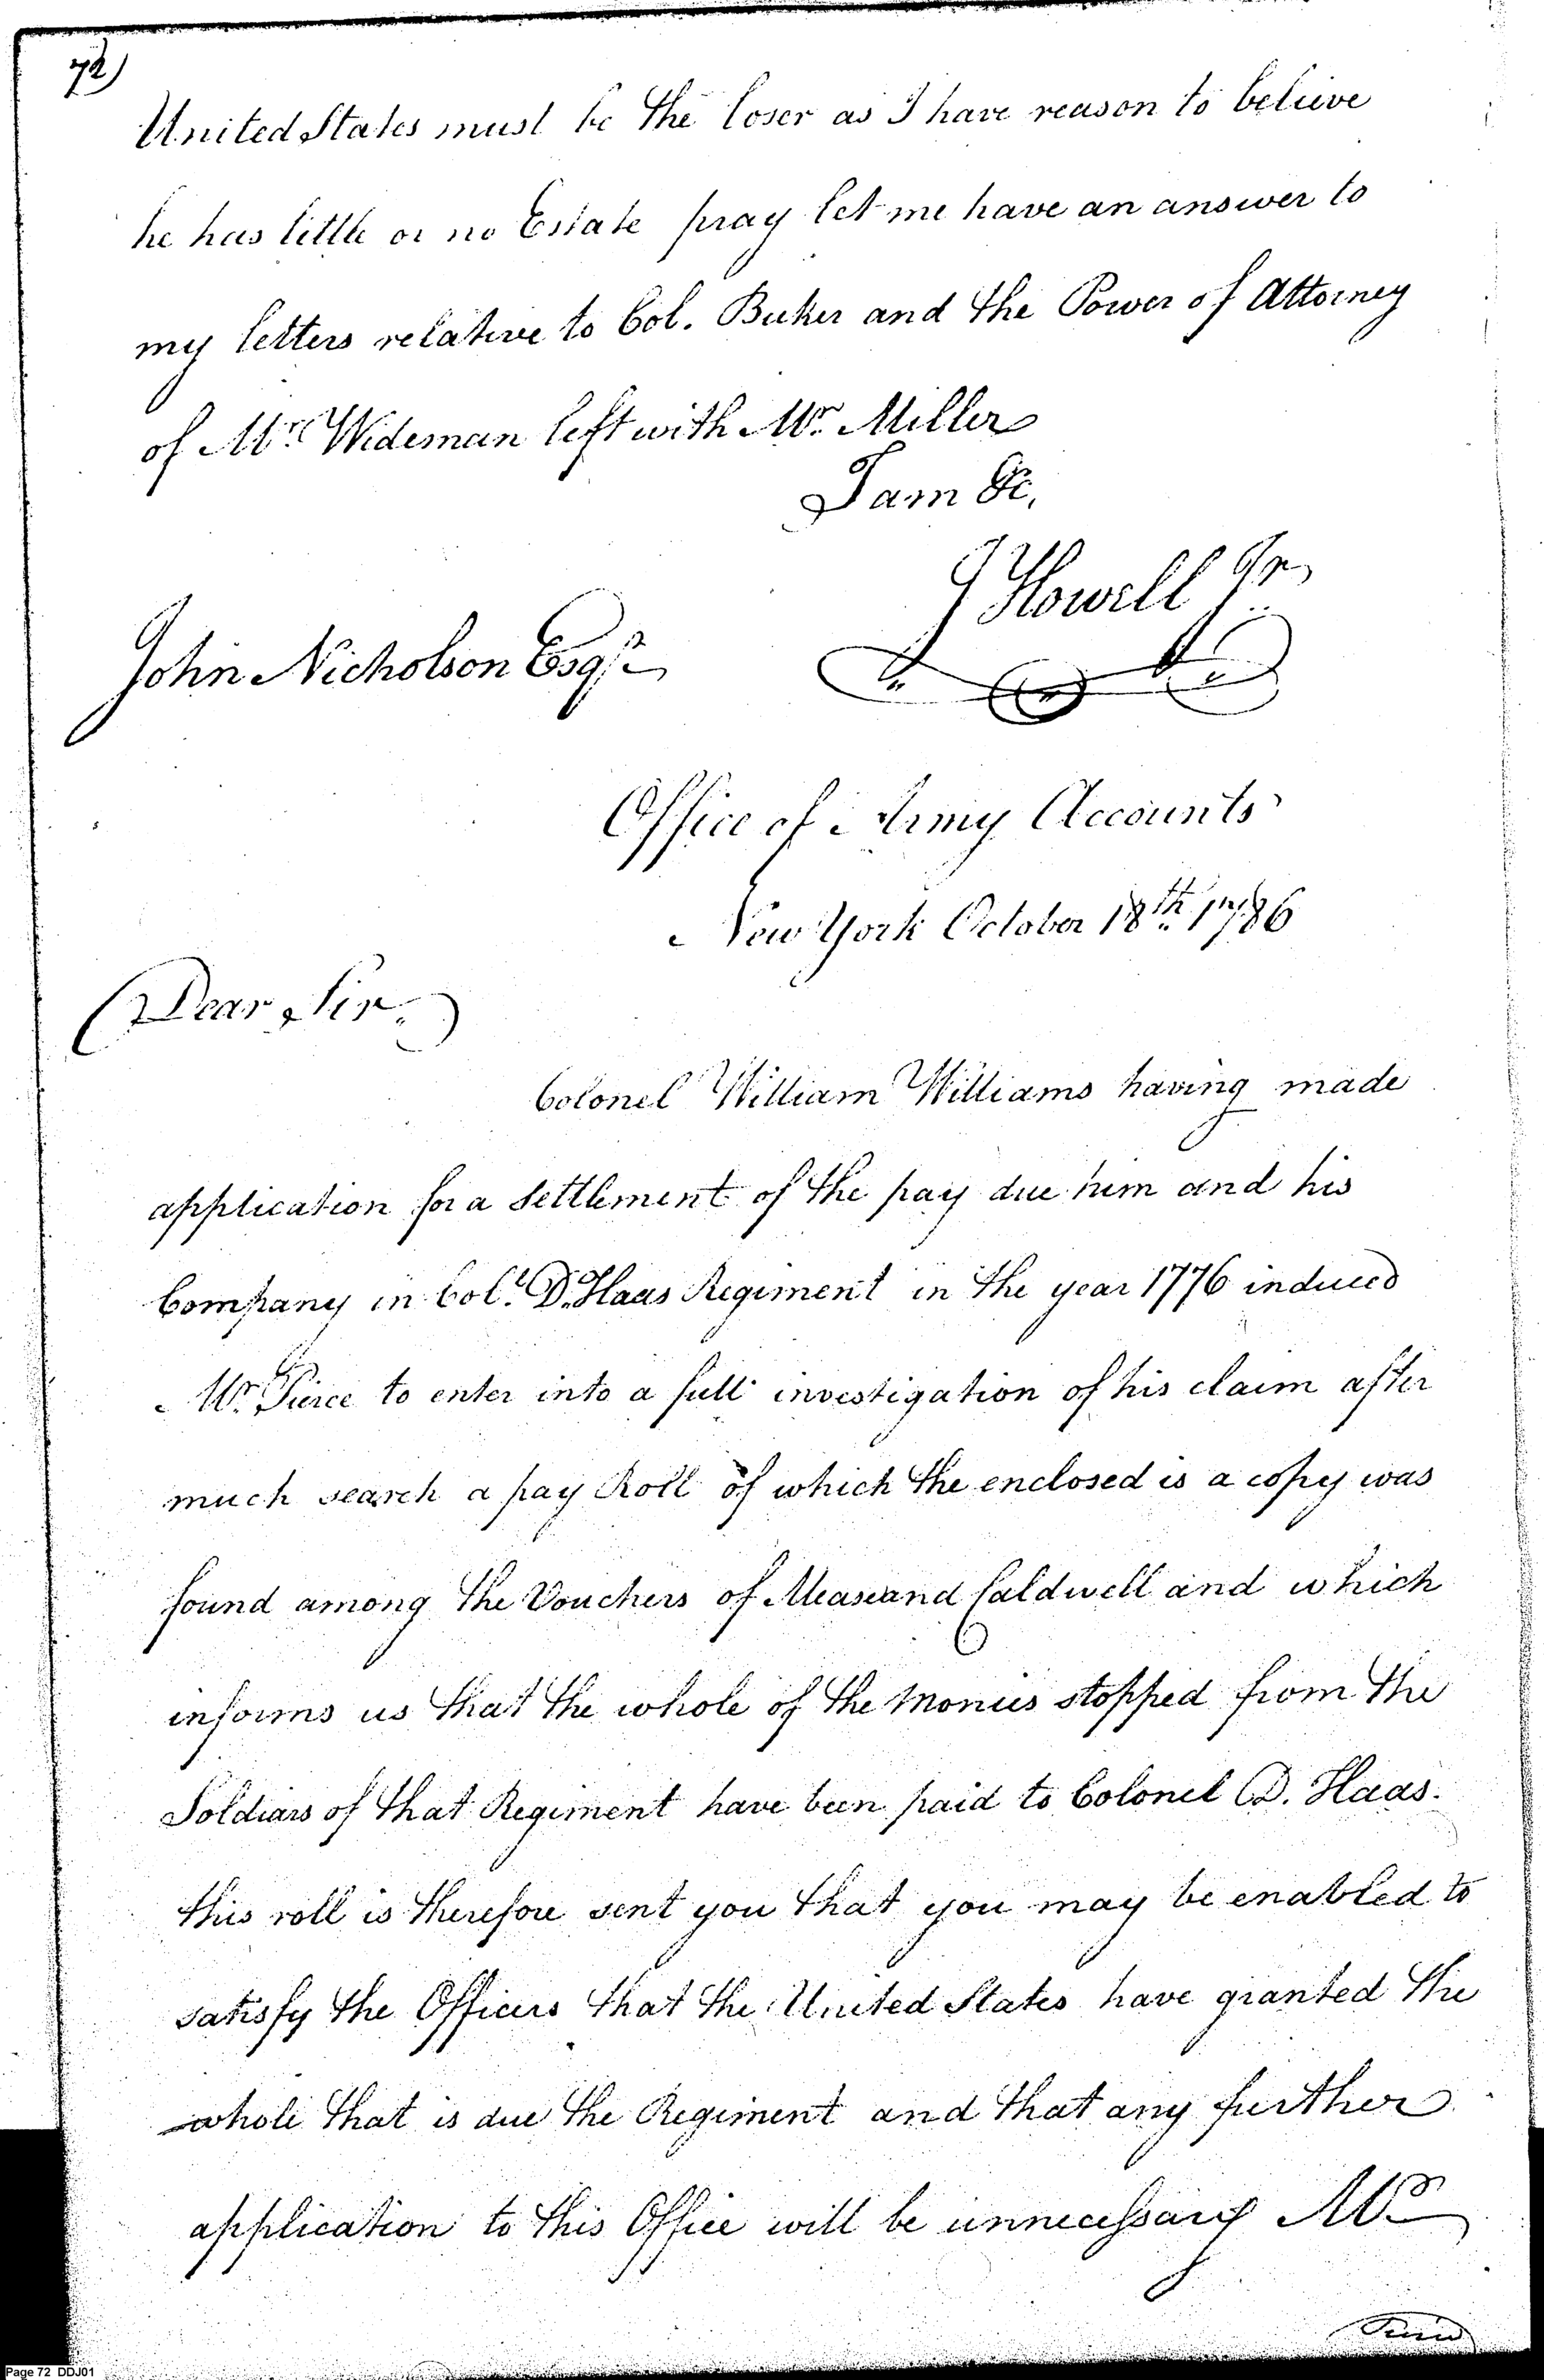 72)
United States must be the loser as I have reason to believe
he has little or no Estate pray let me have an answer to
my letters relative to Col. Buker and the Power of Attorney
of Mr. Wideman left with Mr. Miller
I am &c,
J Howell Jr
John Nicholson Esqr.
Office of Army Accounts
New York October 18th. 1786
Dear Sir.
Colonel William Williams having made
application for a Settlement of the pay due him and his
Company in Col. D. Haas Regiment in the year 1776 induced
Mr. Pierce to enter into a full investigation of his claim after
much search a pay Roll of which the enclosed is a copy was
found among the Vouchers of Mease and Caldwell and which
informs us that the whole of the Monies stopped from the
Soldiars of that Regiment have been paid to Colonel D. Haas.
this roll is therefore sent you that you may be enabled to
satisfy the Officers that the United States have granted the
whole that is due the Regiment and that any further
application to this Office will be unnecessary Mr.
Page 72 DDJ01